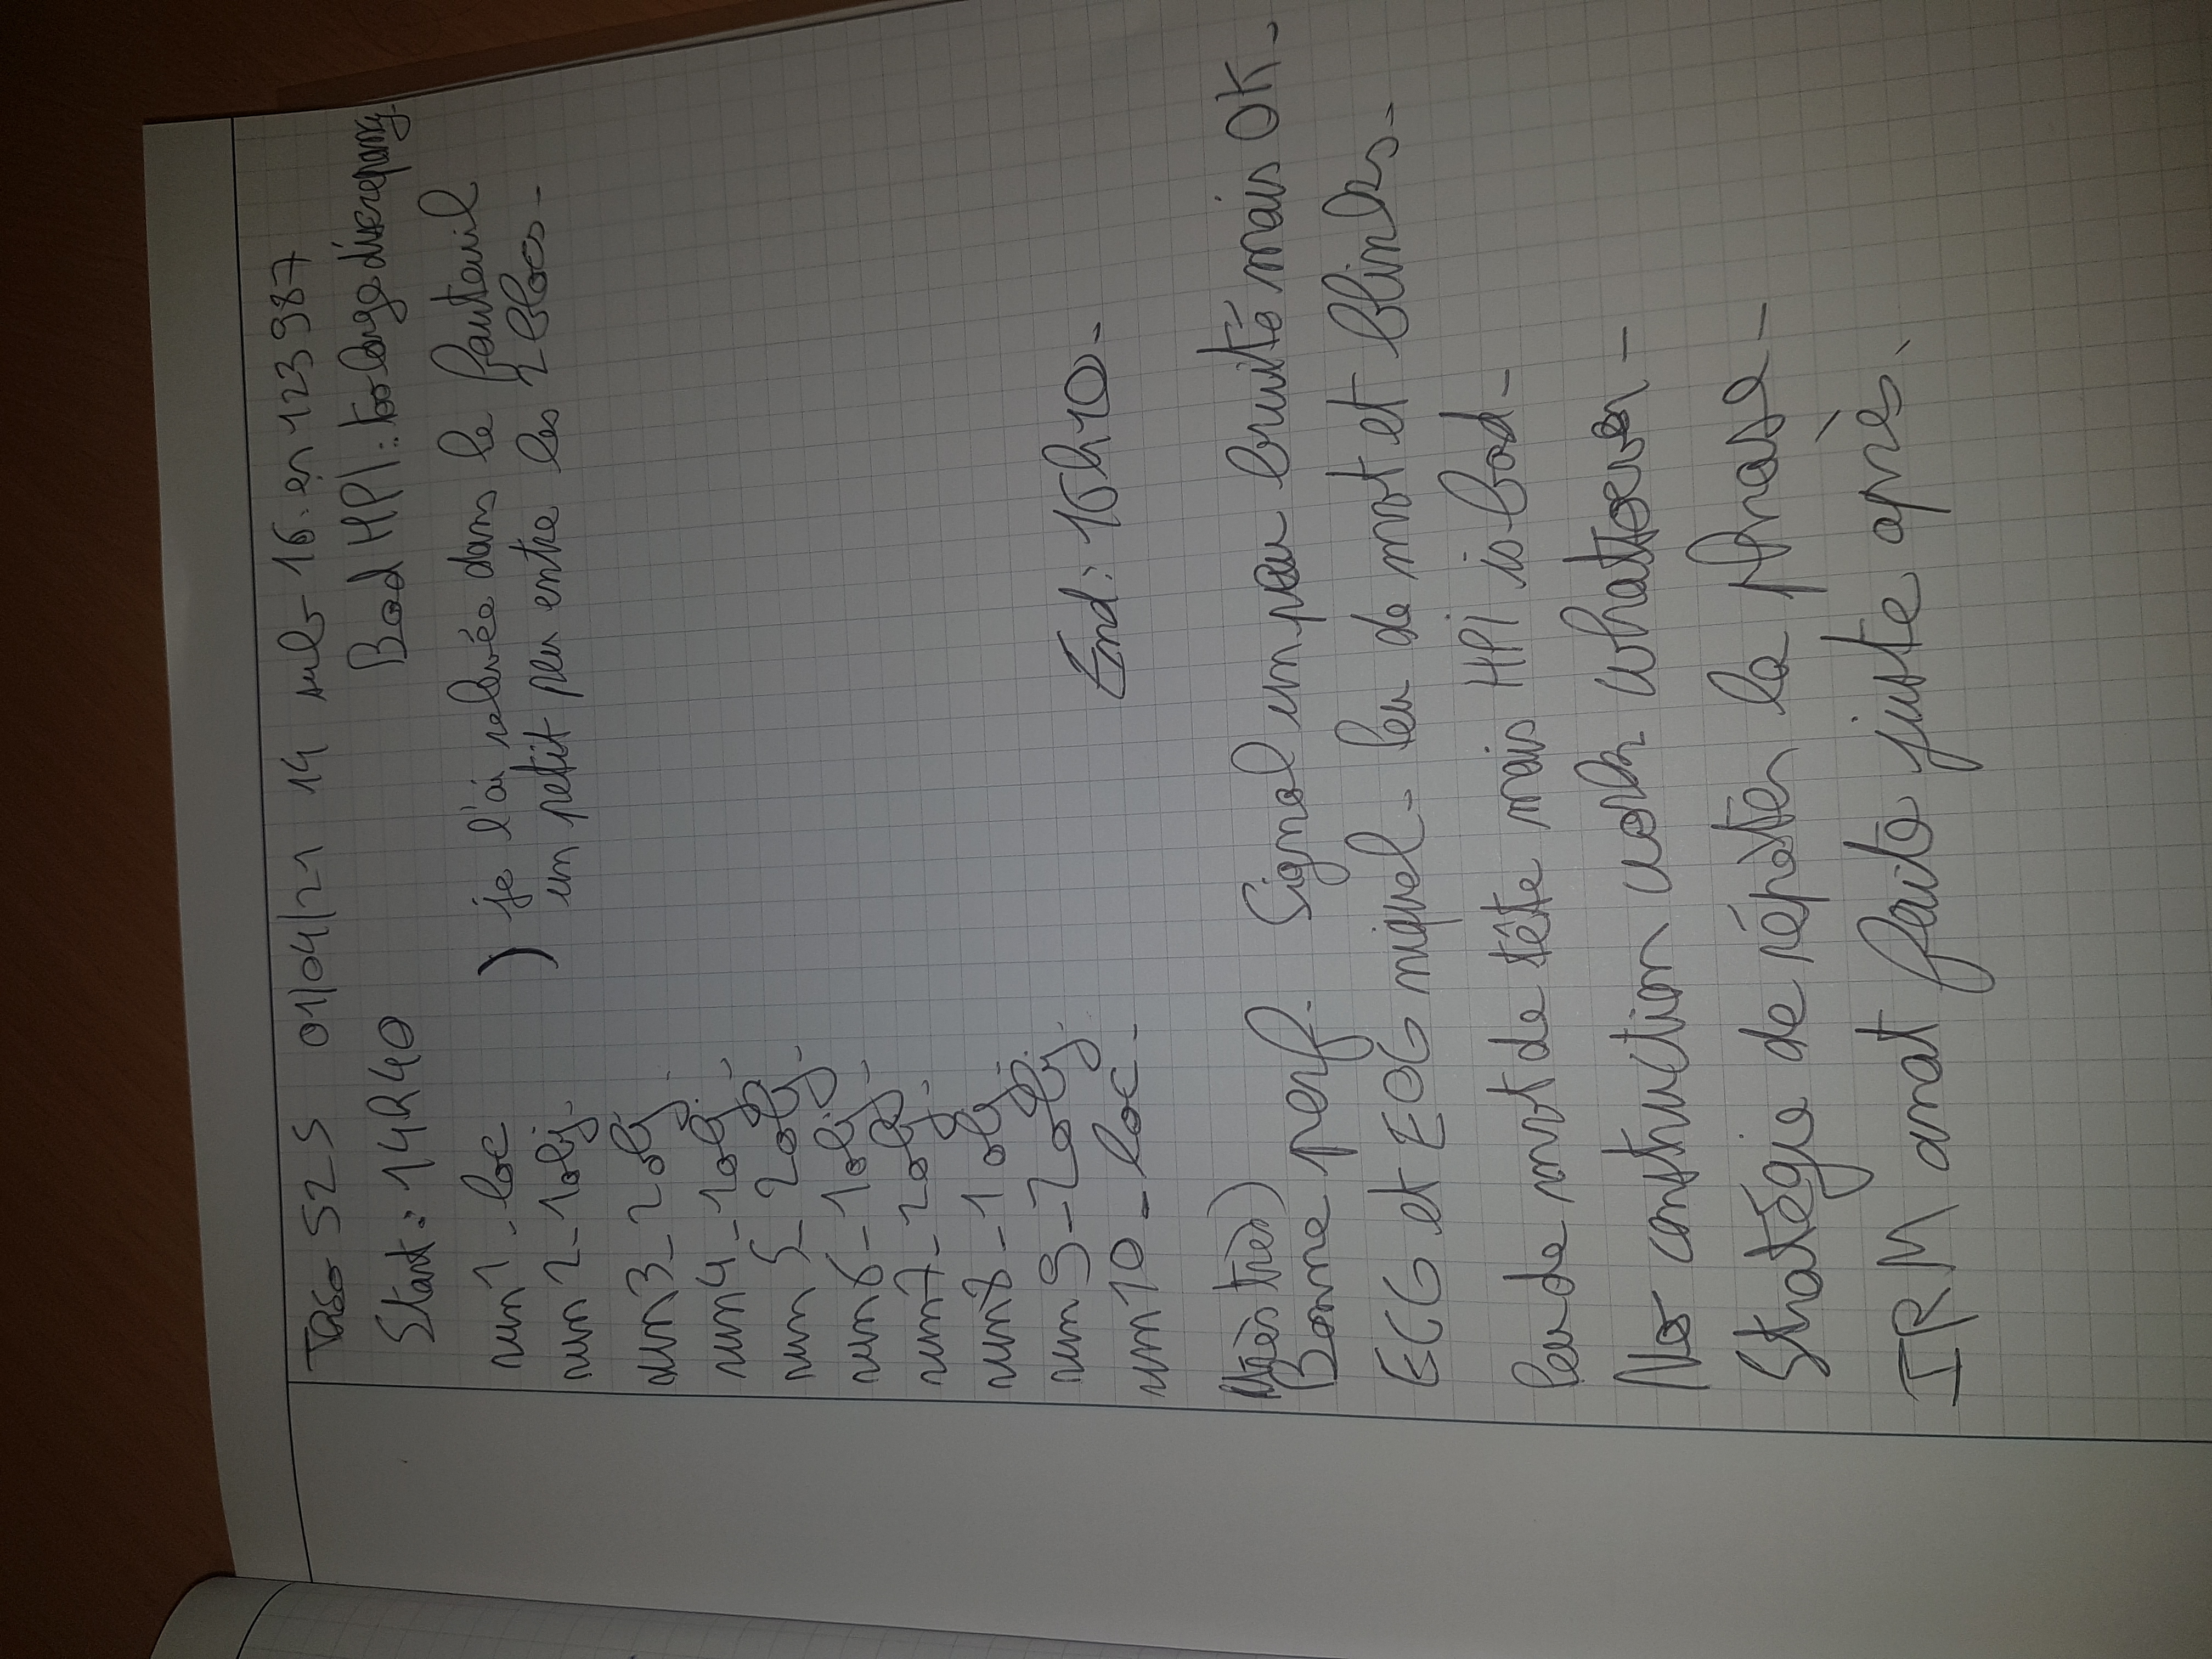 525 01/04/21 14 sub-16. en 123987
Start: 14h40
Bad HPI: too large discrepancy.
run1_loc
) je l'ai relevée dans le fauteuil
run 2_1obj.
un petit peu entre les 2 blocs.
run3_2obj.
run4_1obj.
run 5_2obj.
run6_1obj.
run7_2obj.
run8_1obj.
run9_2obj.
run10_loc.
End: 16h10.
(très très)
Bonne perf. Signal un peu bruité mais OK.
ECG et EOG niquel. Peu de mvt et blinks.
Peu de mvt de tête mais HPI is bad.
No construction work whatsoever.
Stratégie de répéter la phrase.
IRM anat faite juste après.